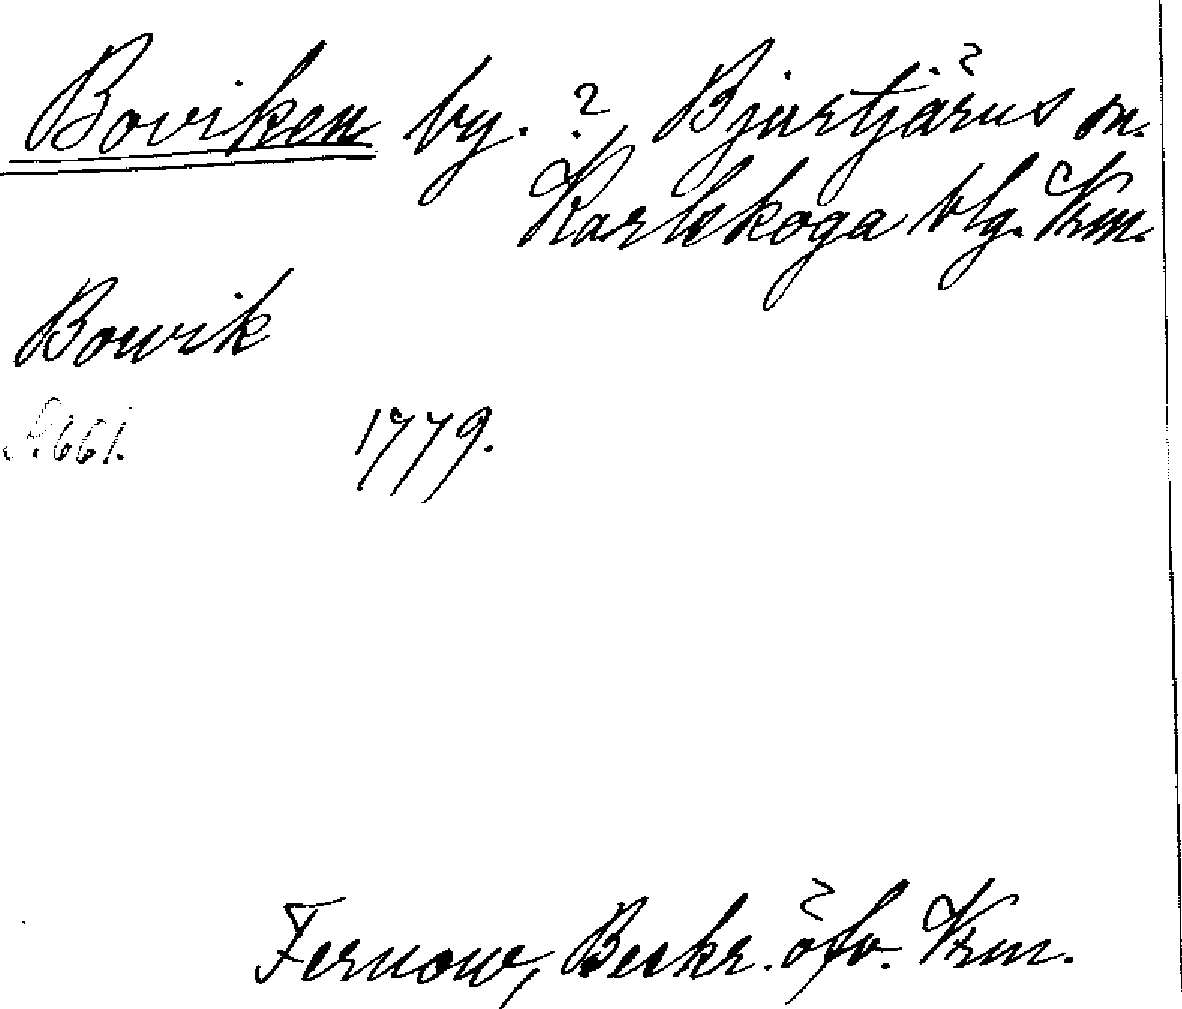 Boviken by. ? Bjurtjärns sn.
Karlskoga blg. Vrm.
Bowik
S. 661. 1779.
Fernow, Beskr. öfv. Vrm.